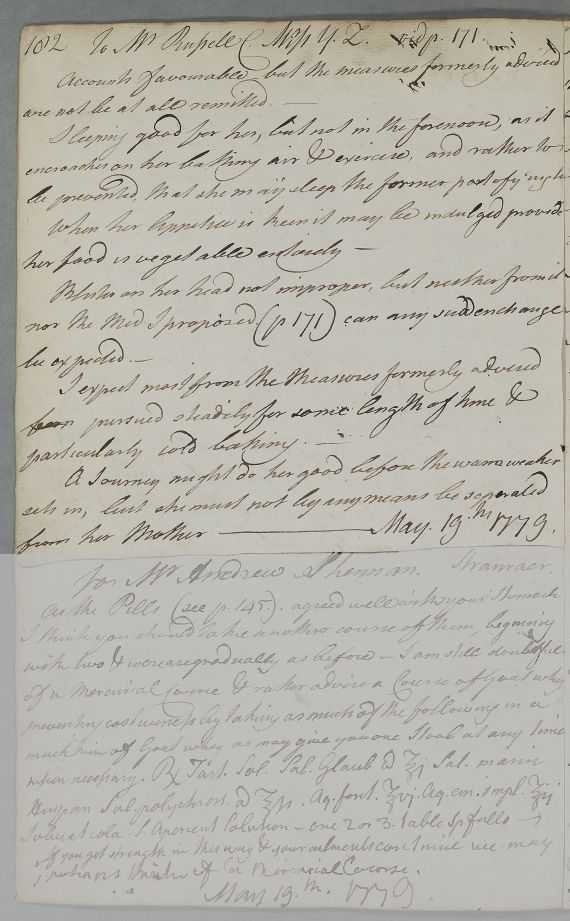 182 To Mr Rupell C Miss Y. Z. vid p. 171.
Accounts favourable but the measures formerly advised
are not be at all remitted. —
Sleeping good for her, but not in the forenoon, as it
encroaches on her bathing air & exercise, and rather to
be prevented, that she may sleep the former part of ye night
When her Appetite is keen it may be indulged provide
her food is vegetable entirely —
Blister on her head not improper, but neither from it
nor the Med I proposed (p 171) can any sudden change
be expected. —
I expect most from the measures formerly advised
pursued steadily for some length of time &
particularly cold bathing. —
A Journey might do her good before the warm weather
sets in, but she must not by any means be seperated
from her Mother — May. 19.th 1779.
for Mr Andrew Shennan. Stranraer.
As the Pills (see p. 145). agreed well with your Stomach
I think you should take another course of them beginning
with two & increase gradually as before — I am still doubtfull
of a Mercurial Course & rather advise a Course of Goat whey
preventing costiveness by taking as much of the following in a
much of Goat whey as may give you one Stool at any time
when necessary. ℞ Tart. Sol. Sal. Glaub a ʒj Sal. marin
Hispan Sal. polychrest. a ʒss. Aq. font. ℥vj. Aq. cin. simpl. ℥ij
Solve et cola. S. Aperient Solution — one 2 or 3. table Spfulls —
If you get strength in this way & your ailments continue we may
perhaps think of a Mercurial Course.
May 19.th. 1779.